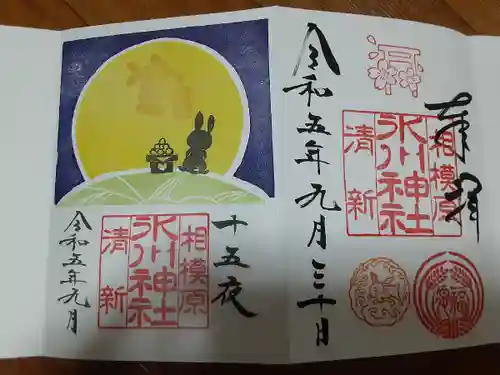 奉拝
相模原
氷川神社
清新
令和五年九月三十日
十五夜
相模原
氷川神社
清新
令和五年九月